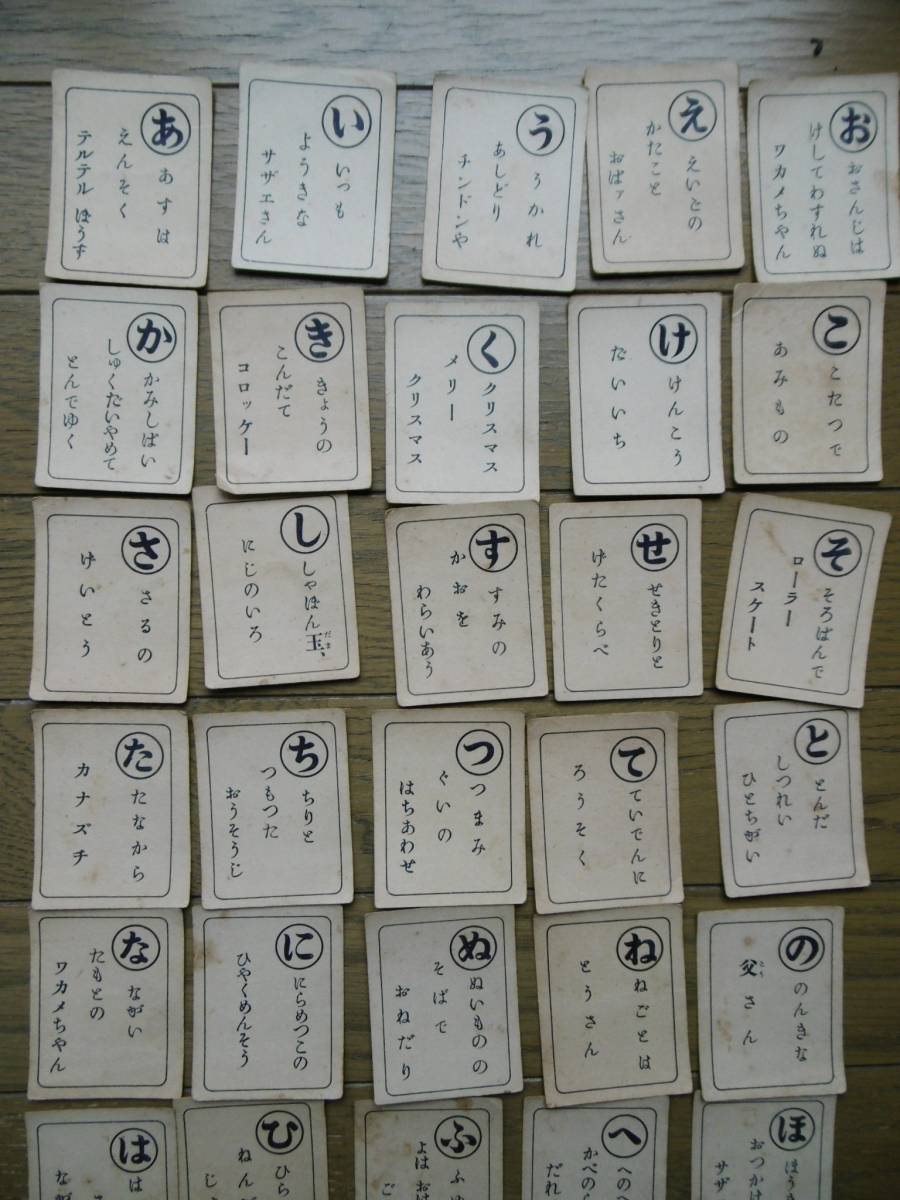 あ
あすは
えんそく
テルテルぼうず
い
いつも
ようきな
サザエさん
う
うかれ
あしどり
チンドンや
え
えいごの
かたこと
おばァさん
お
おさんじは
けしてわすれぬ
ワカメちゃん
か
かみしばい
しゅくだいやめて
とんでゆく
き
きょうの
こんだて
コロッケー
く
クリスマス
メリー
クリスマス
け
けんこう
だいいち
こ
こたつで
あみもの
さ
さるの
げいとう
し
しゃぼん玉、
だま
にじのいろ
す
すみの
かおを
わらいあう
せ
せきとりと
げたくらべ
そ
そろばんで
ローラー
スケート
た
たなから
カナズチ
ち
ちりと
つもつた
おうそうじ
つ
つまみ
ぐいの
はちあわせ
て
ていでんに
ろうそく
と
とんだ
しつれい
ひとちがい
な
ながい
たもとの
ワカメちやん
に
にらめつこの
ひやくめんそう
ぬ
ぬいものの
そばで
おねだり
ね
ねごとは
とうさん
の
のんきな
父さん
とう
は
は
なが
ひ
ひら
ねんが
じ
ふ
ふゆ
よはおは
ご
へ
へのへ
かべのら
だれ
ほ
ほう
おつかけ
サザ